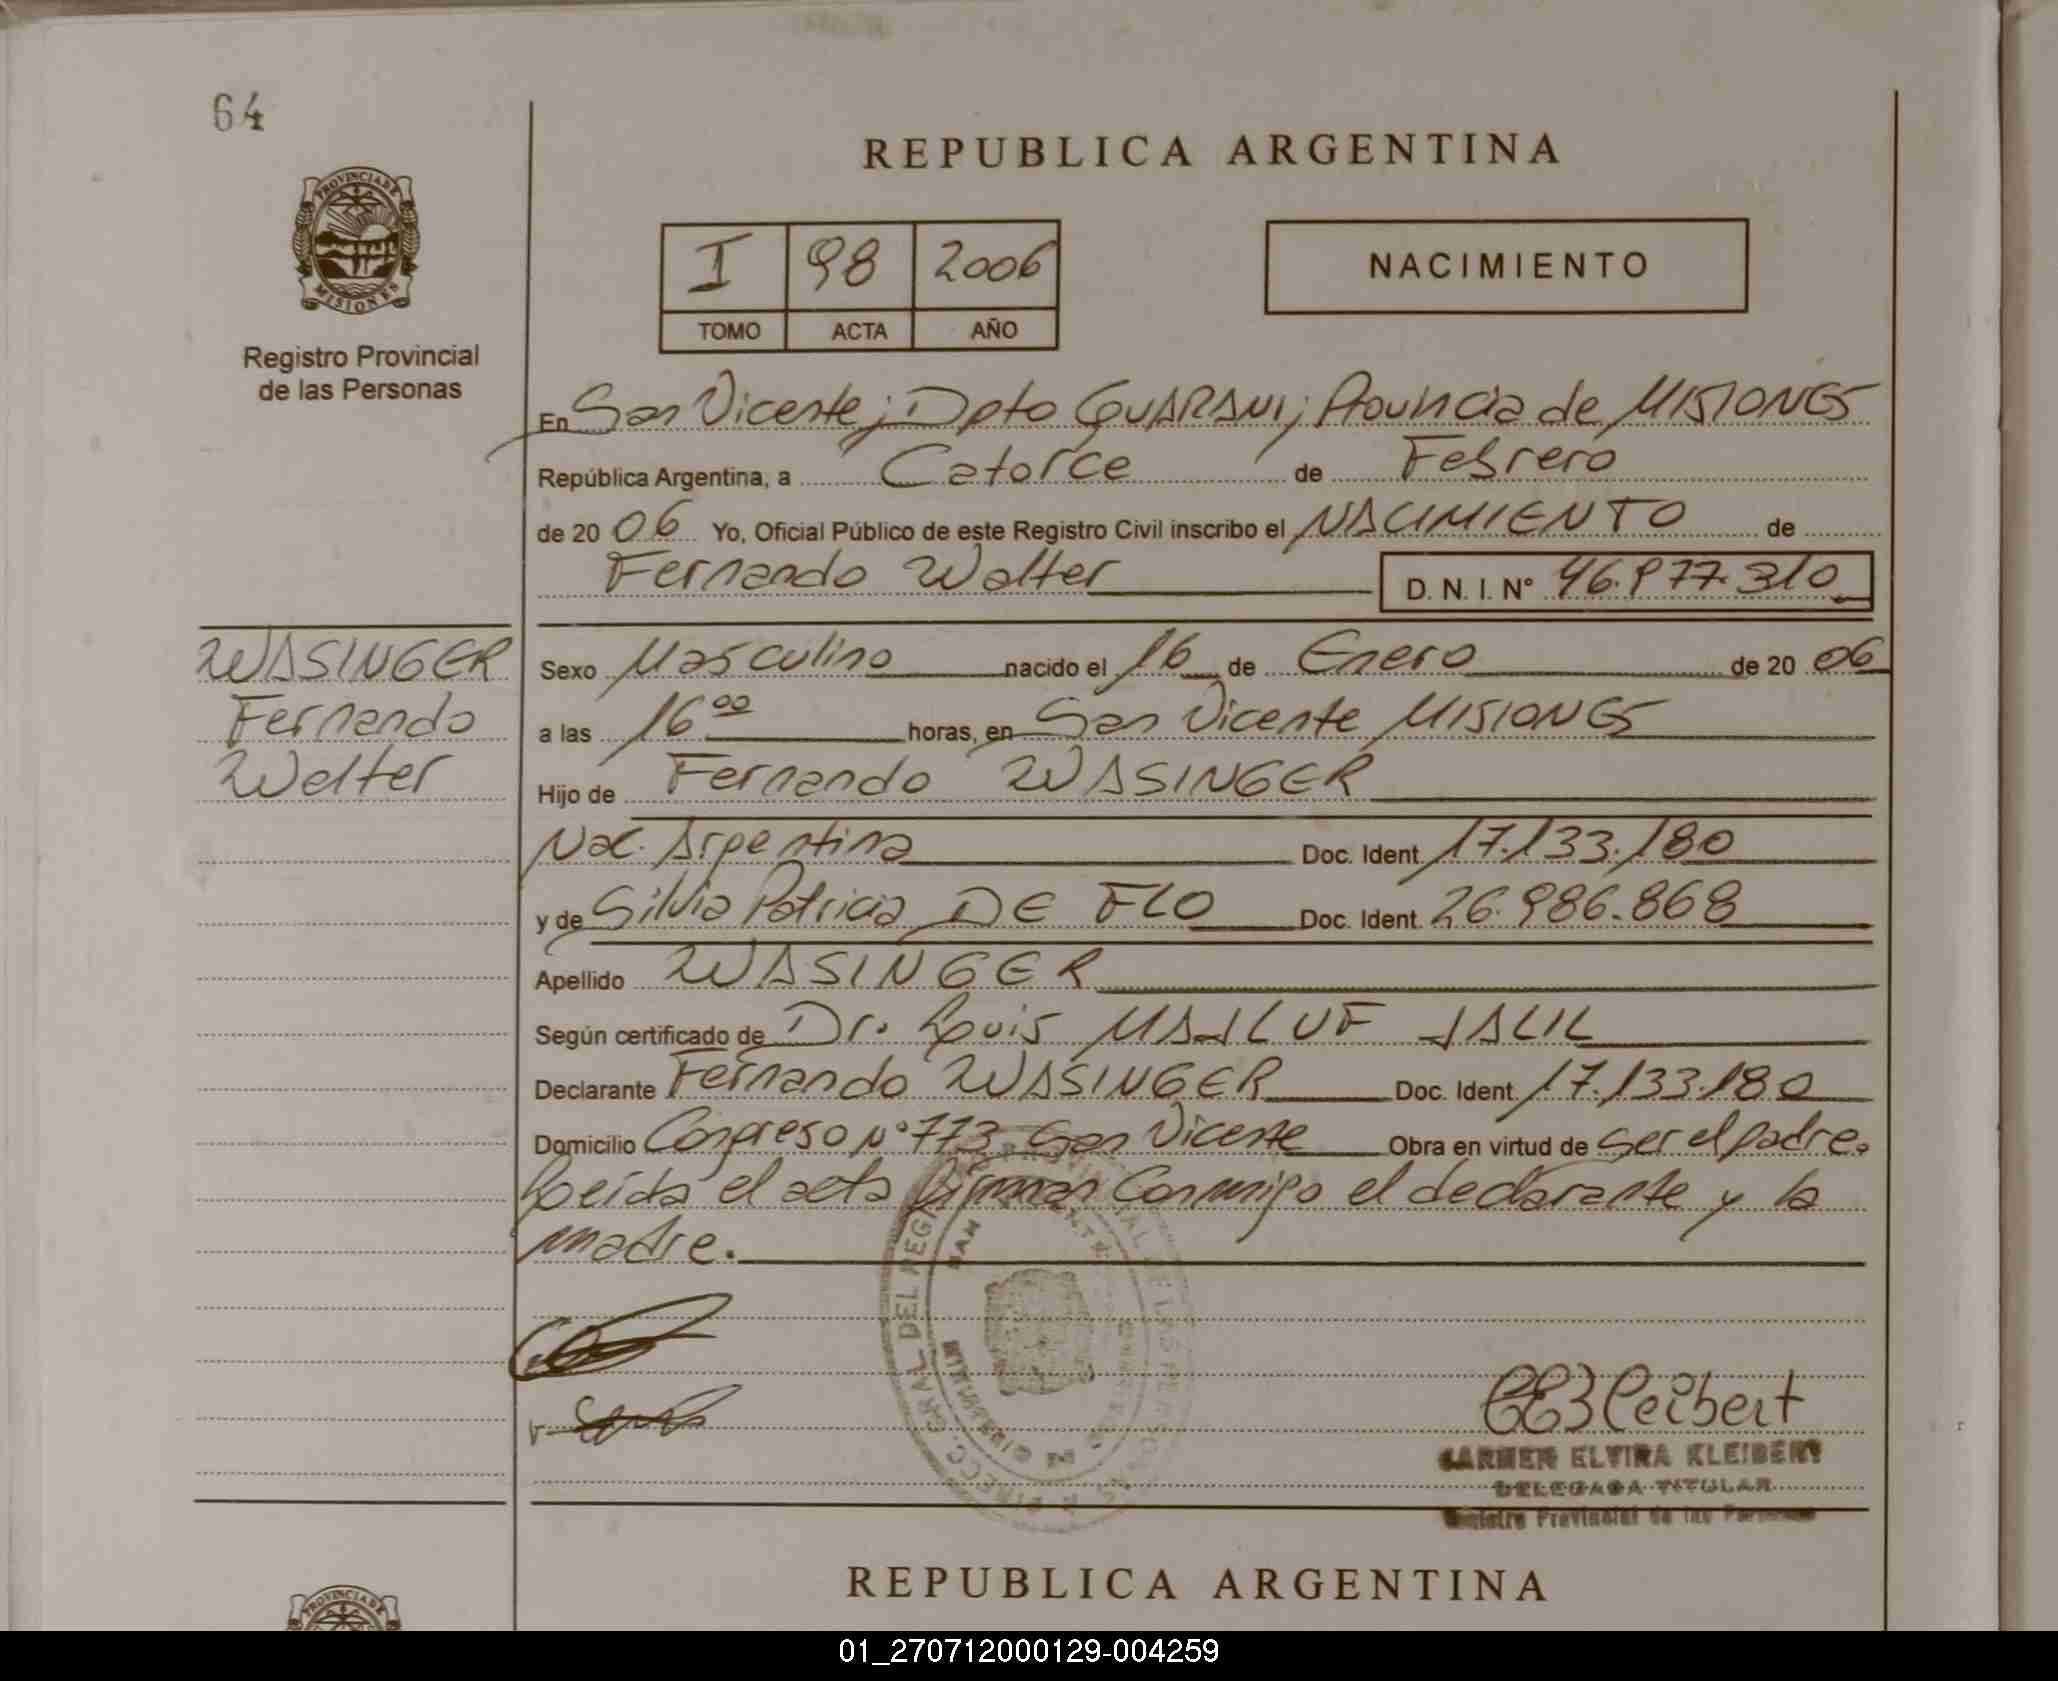 64
REPUBLICA ARGENTINA
PROVINCIA DE
MISIONES
Registro Provincial
de las Personas
I 98 2006
TOMO ACTA AÑO
NACIMIENTO
En San Vicente; Dpto GUARANI; Provincia de MISIONES
República Argentina, a Catorce de Febrero
de 20 06 Yo, Oficial Público de este Registro Civil inscribo el NACIMIENTO de
Fernando Walter D. N. I. N° 46.977.310
WASINGER
Fernando
Walter
Sexo Masculino nacido el 16 de Enero de 20 06
a las 16 00 horas, en San Vicente MISIONES
Hijo de Fernando WASINGER
Nac. Argentina Doc. Ident. 17.133.180
y de Silvia Patricia DE FLO Doc. Ident. 26.986.868
Apellido WASINGER
Según certificado de Dr. Louis JALIL
Declarante Fernando WASINGER Doc. Ident. 17.133.180
Domicilio Congreso N° 773 San Vicente Obra en virtud de ser el padre.
Leída el acta firman conmigo el declarante y la
madre.
CARMEN ELVIRA KLEIBERT
DELEGADA TITULAR
Registro Provincial de las Personas
REPUBLICA ARGENTINA
PROVINCIA DE
01_270712000129-004259